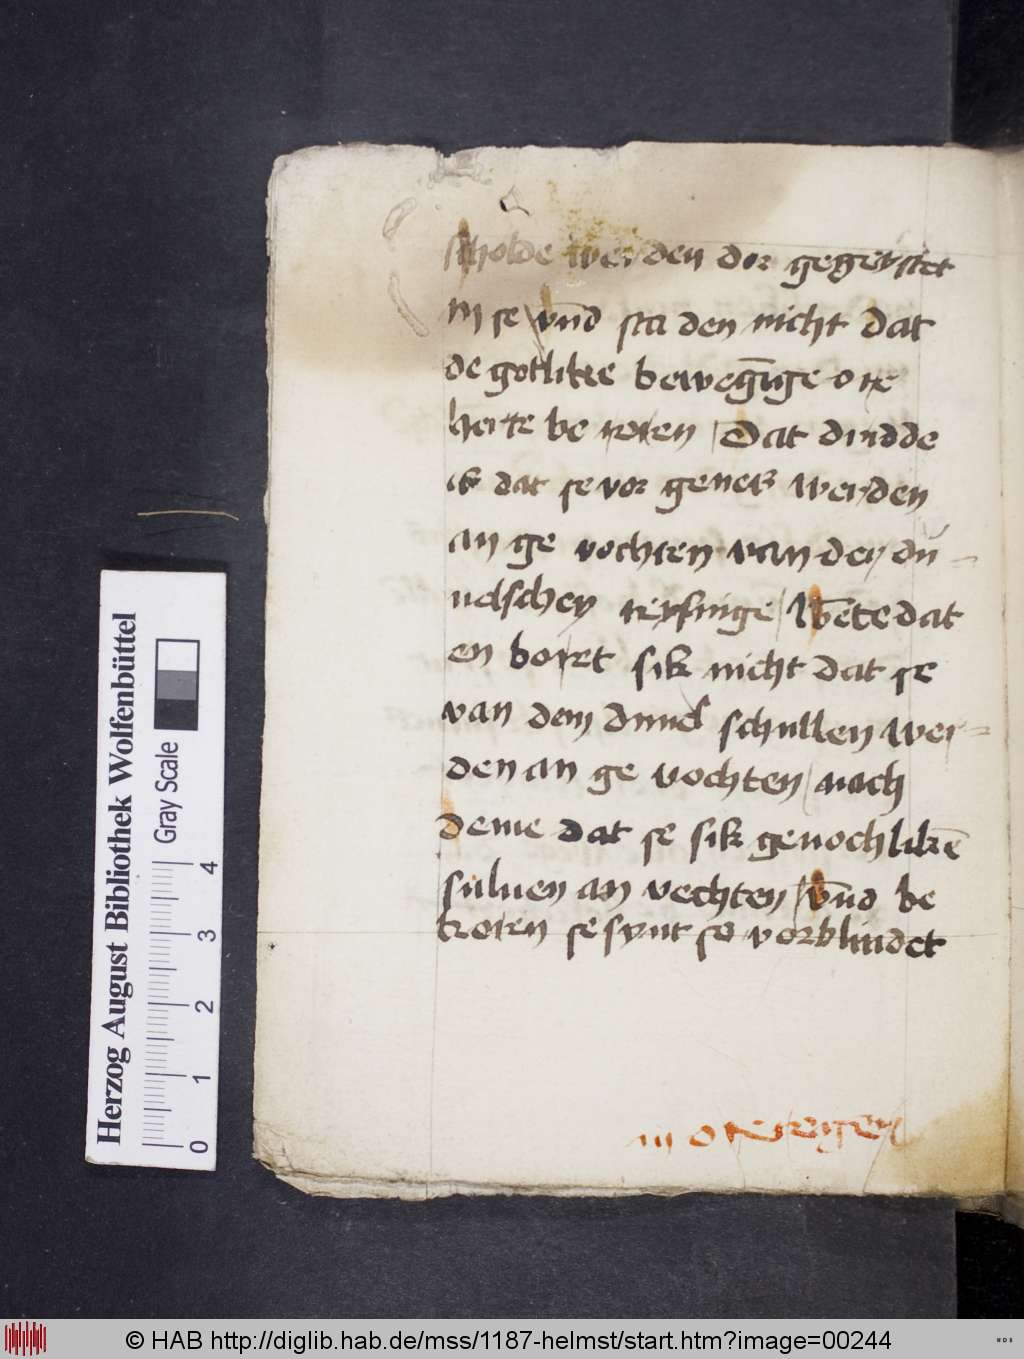 scholde werden dor gegeystet
in se vn̄d sta den nicht dat
de gotlike bewegūge ore
herte be roren Dat dudde
ik dat se vor genck werden
an ge vochten van der du
uelschen reysinge Wēte dat
en boret sik nicht dat se
van dem duuel schullen wer
den an ge vochten nach
deme dat se sik genochlikē
suluen an vechten vn̄d be
koren se synt so vorblindet
in o eygen
Herzog August Bibliothek Wolfenbüttel
Gray Scale
0 1 2 3 4
© HAB http://diglib.hab.de/mss/1187-helmst/start.htm?image=00244